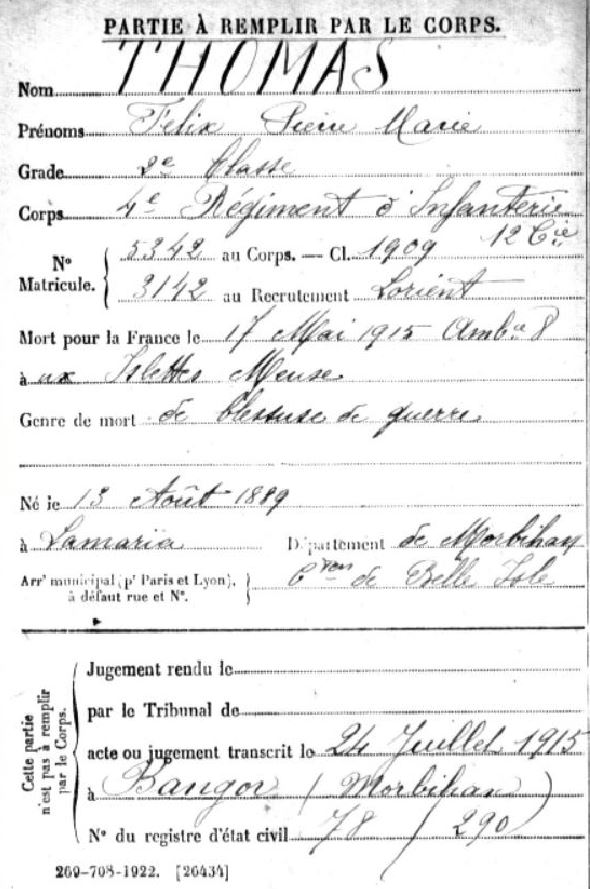 PARTIE À REMPLIR PAR LE CORPS.
Nom THOMAS
Prénoms Félix Pierre Marie
Grade 2e Classe
Corps 4e Régiment d'Infanterie
12 Cie
No Matricule. { 5342 au Corps. — Cl. 1909
3142 au Recrutement Lorient
Mort pour la France le 17 Mai 1915 Ambce 8
à aux Islettes Meuse
Genre de mort de blessure de guerre
Né le 13 Août 1889
à Lomaria Département de Morbihan
Arrt municipal (pr Paris et Lyon), à défaut rue et No. } de Belle Isle
Cette partie n'est pas à remplir par le Corps.
Jugement rendu le
par le Tribunal de
acte ou jugement transcrit le 24 Juillet 1915
à Bangor (Morbihan)
No du registre d'état civil 78 / 290
269-708-1922. [26434]